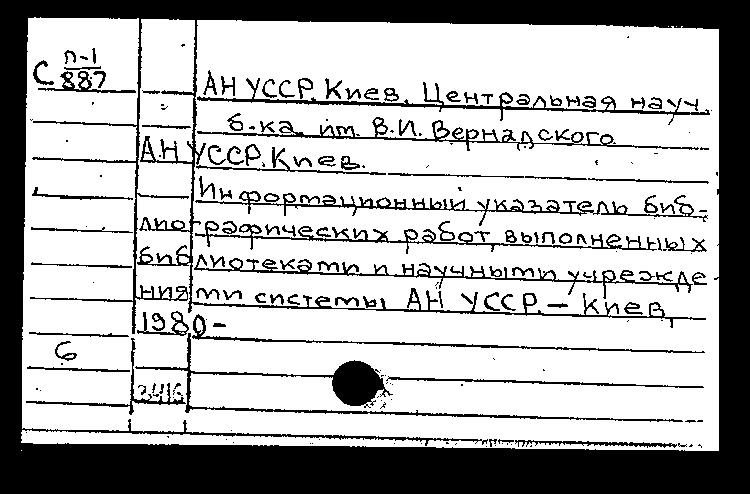 С п-1
887
АН УССР. Киев. Центральная науч.
б-ка им. В.И. Вернадского
АН УССР. Киев.
Информационный указатель биб-
лиографических работ, выполненных
библиотеками и научными учрежде
ниями системы АН УССР. – Киев,
1980-
6
3416